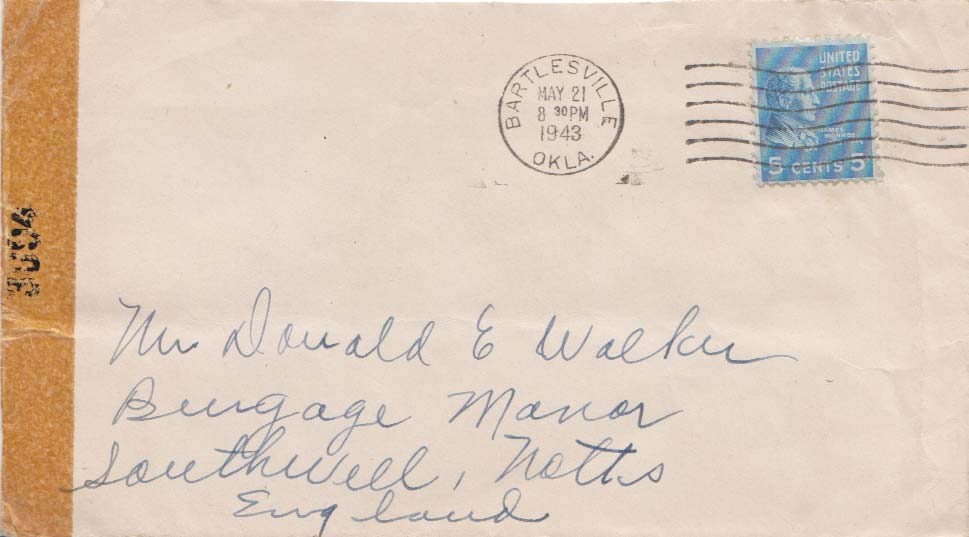 BARTLESVILLE
MAY 21
8 30 PM
1943
OKLA.
UNITED
STATES
POSTAGE
JAMES
MONROE
5 CENTS 5
Mr Donald E Walker
Burgage Manor
Southwell, Notts
England